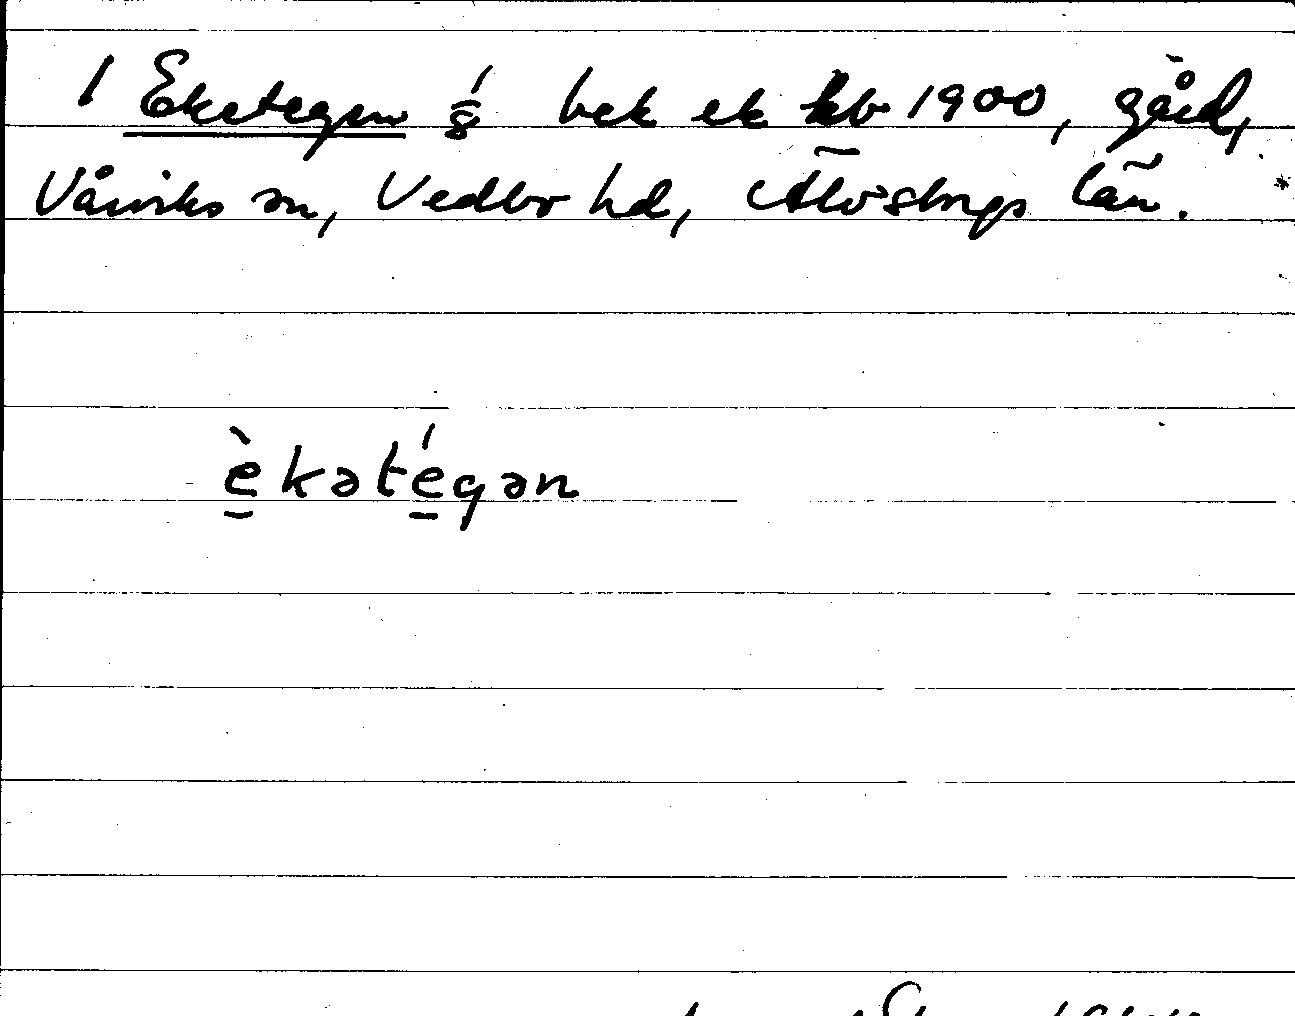 1 Eketegen bek ek kb 1900, gård,
Vårviks sn, Vedbo hd, Älvsborgs län.
èkətégən